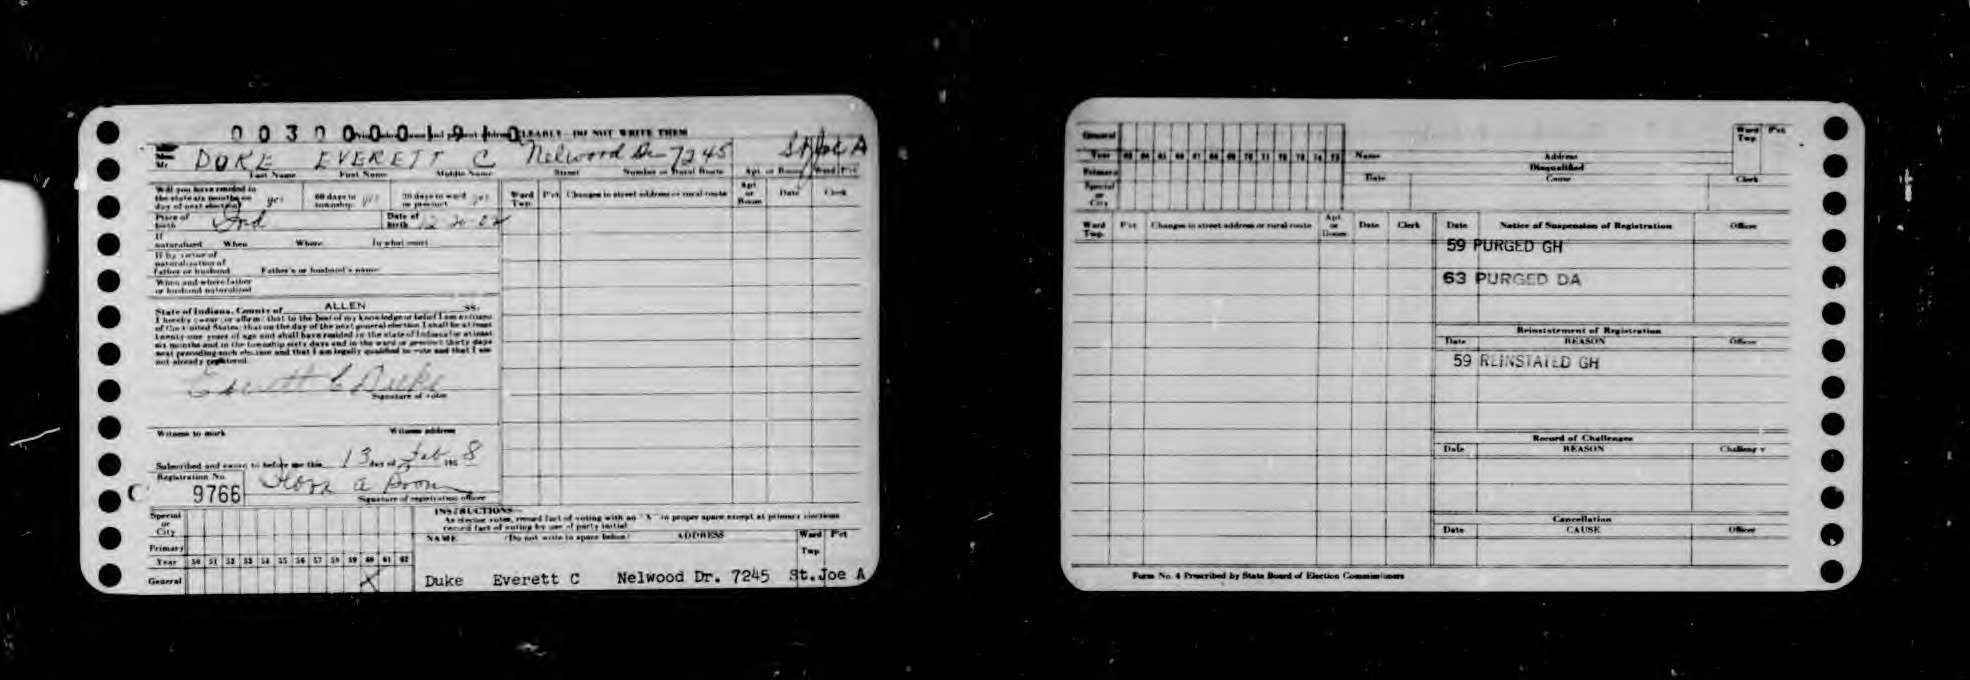 0 0 3 0 0 0 0 1 9 1 0 CLEARLY - DO NOT WRITE THEM
Mr. DUKE EVERETT C Nelwood Dr 7245 St Joe A
Last Name First Name Middle Name Street Number or Rural Route Apt or Room Ward Pct
Will you have resided in
the state six months on yes 60 days in yes 30 days in ward yes
day of next election township or precinct
Ward Pct Changes in street address or rural route Apt Date Clerk
Twp. or
Room
Place of Ind Date of 12-20-02
birth birth
If
naturalized When Where In what court
If by virtue of
naturalization of
Father or husband Father's or husband's name
When and where father
or husband naturalized
State of Indiana, County of ALLEN SS.
I hereby swear (or affirm) that to the best of my knowledge or belief I am a citizen
of the United States; that on the day of the next general election I shall be at least
twenty-one years of age and shall have resided in the state of Indiana for at least
six months and in the township sixty days and in the ward or precinct thirty days
next preceding such election and that I am legally qualified to vote and that I am
not already registered.
Everett C Duke
Signature of voter
Witness to mark Witness address
Subscribed and sworn to before me this 13 day of Feb 1958
Registration No.
9766
Signature of registration officer
C
INSTRUCTIONS—
As elector votes, record fact of voting with an "X" in proper space except at primary elections
record fact of voting by use of party initial
Special
or
City
Primary
Year 50 51 52 53 54 55 56 57 58 59 60 61 62
General X
NAME (Do not write in space below) ADDRESS Ward Pct
Twp.
Duke Everett C Nelwood Dr. 7245 St.Joe A
General
Year 63 64 65 66 67 68 69 70 71 72 73 74 75
Primary
Special
or
City
Name Address Ward Pct
Twp.
Disqualified
Date Cause Clerk
Ward Pct Changes in street address or rural route Apt. Date Clerk
Twp. or
Room
Date Notice of Suspension of Registration Officer
59 PURGED GH
63 PURGED DA
Reinstatement of Registration
Date REASON Officer
59 REINSTATED GH
Record of Challenges
Date REASON Challenger
Cancellation
Date CAUSE Officer
Form No. 4 Prescribed by State Board of Election Commissioners